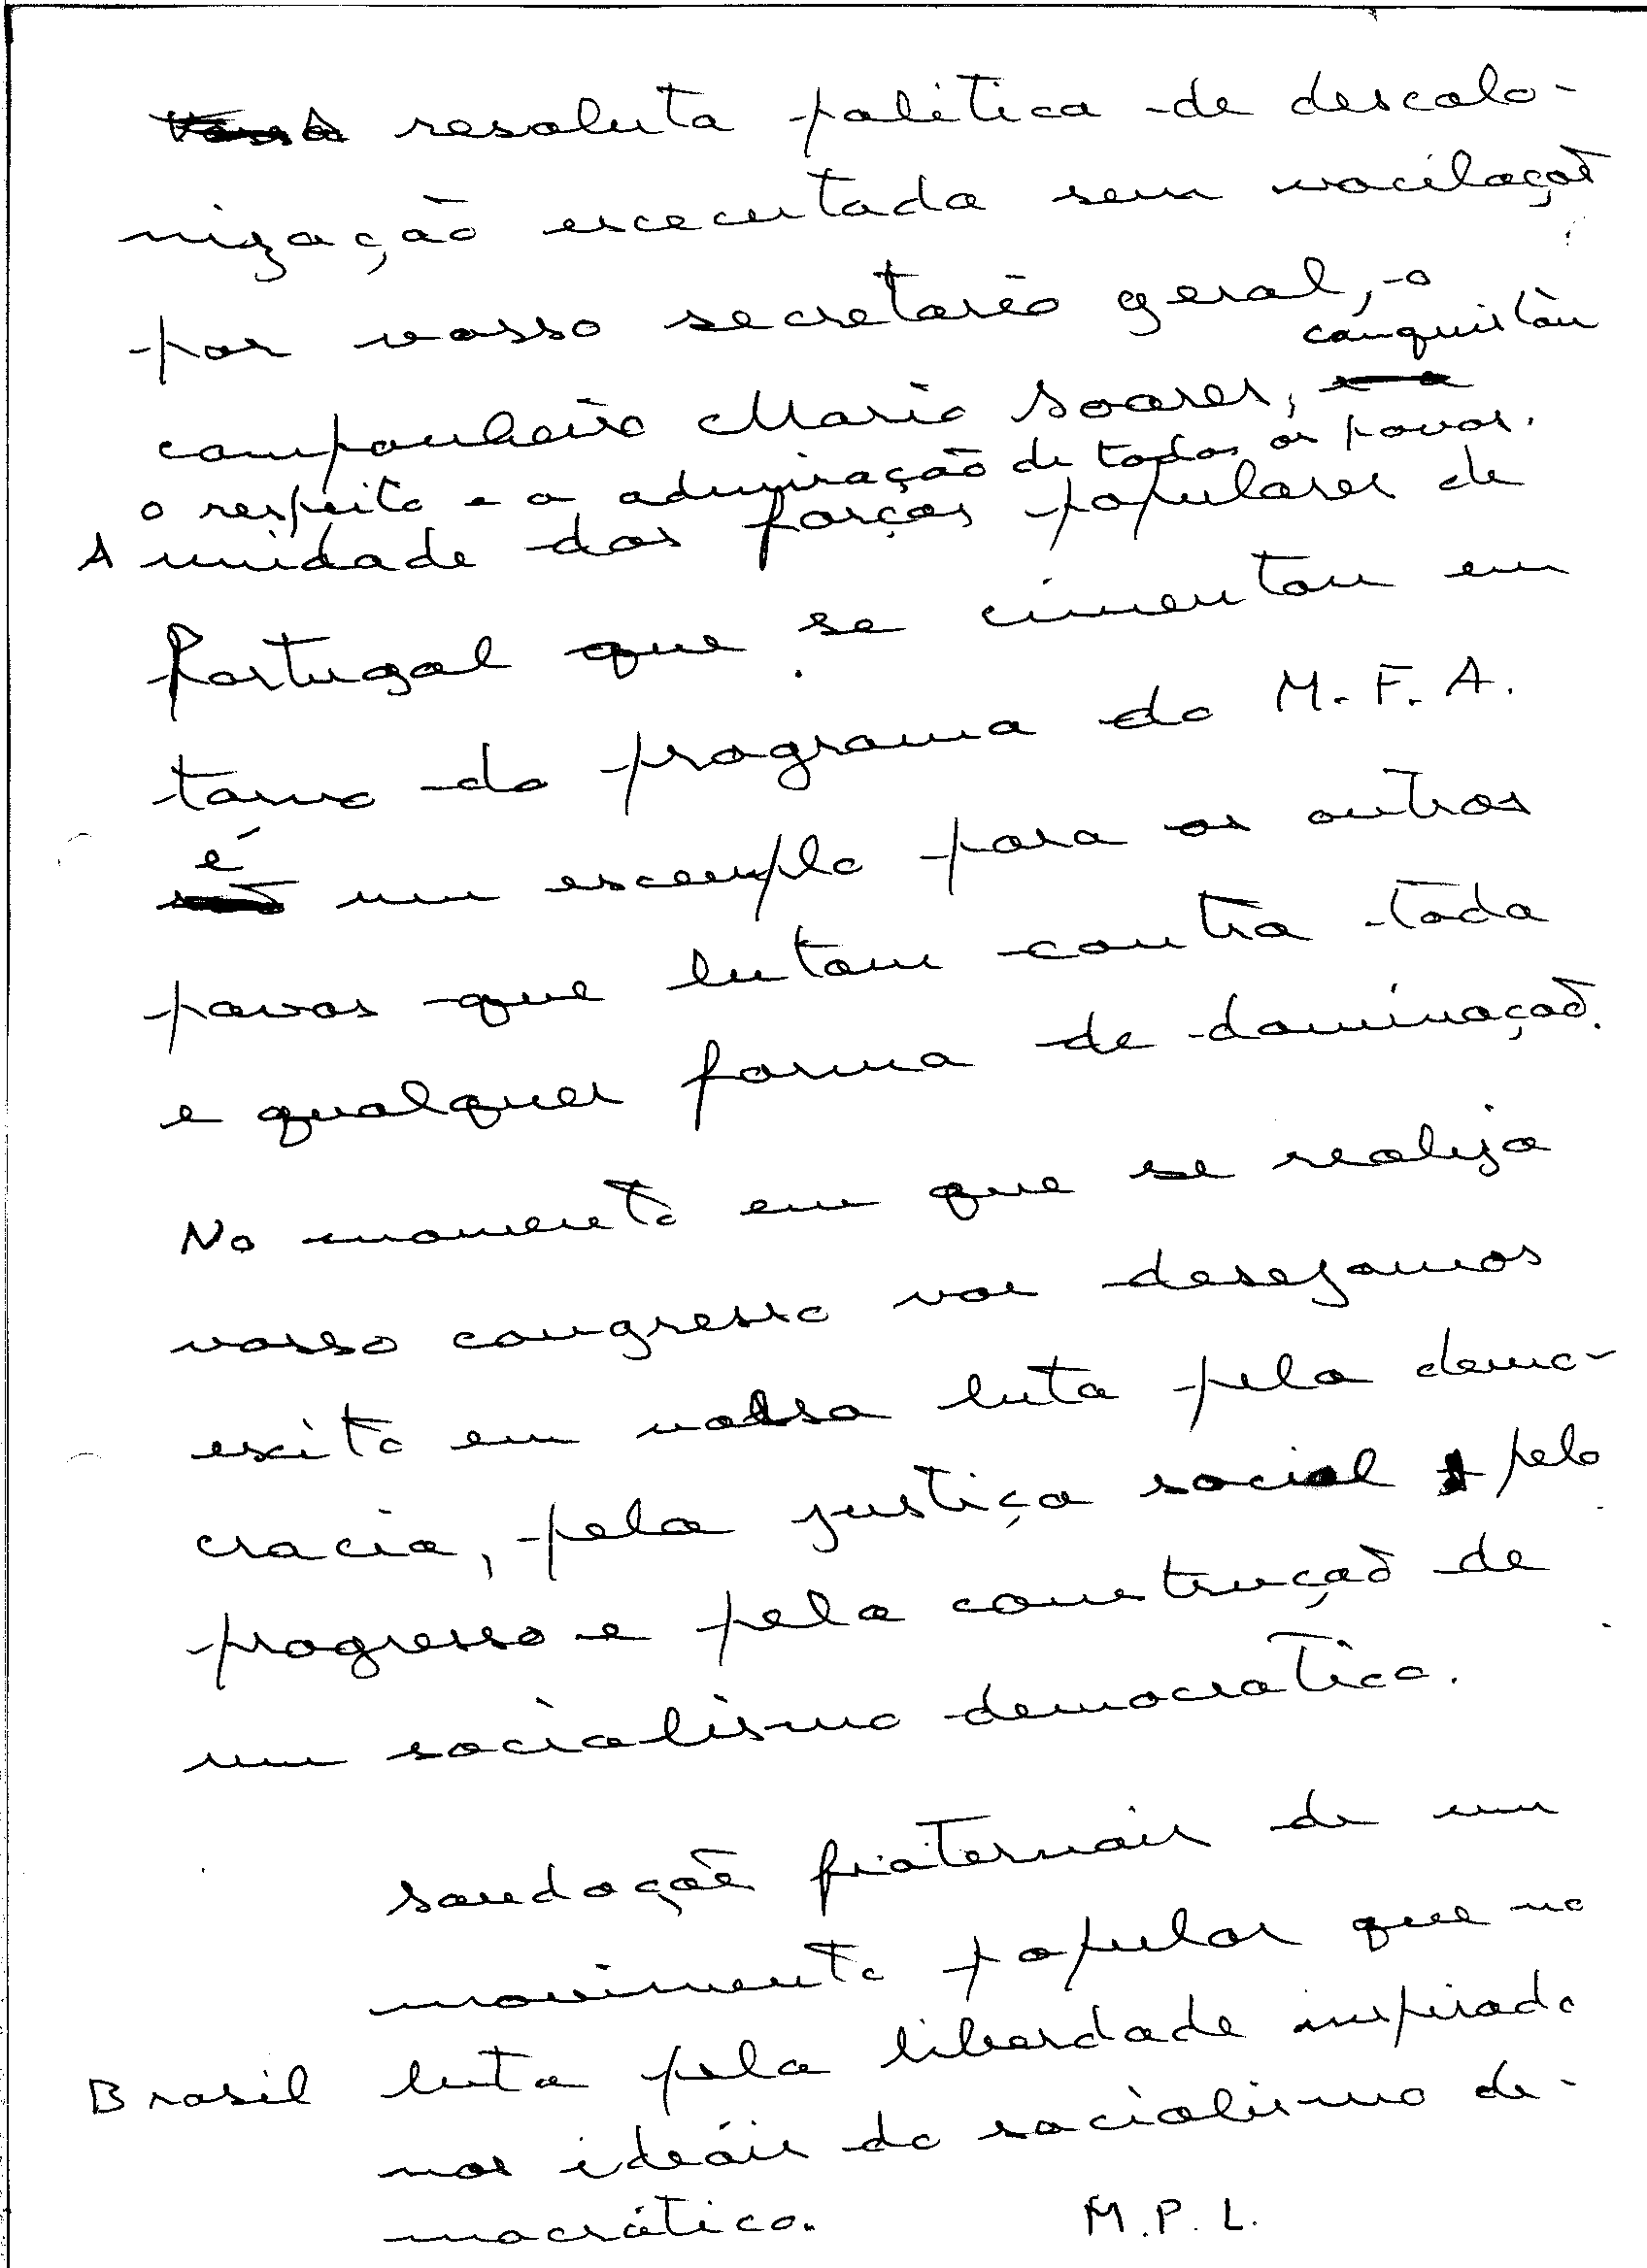 A resoluta política de descolo-
nização executada sem vacilaçaõ
por vosso secretario geral, o
conquistou
companheiro Mario Soares,
o respeito e a admiração de todos os povos.
A unidade das forças populares de
Portugal que se cimentou em
torno do programa do M.F.A.
é
um exemplo para os outros
povos que lutam contra toda
e qualquer forma de dominaçaõ.
No momento em que se realiza
vosso congresso vos desejamos
exito em vossa luta pela demo-
cracia, pela justiça social pelo
progresso e pela construçaõ de
um socialismo democratico.
saudaçoẽs fraternais de um
movimento popular que no
Brasil luta pela liberdade inspirado
nos ideáis do socialismo de-
mocrático. M.P.L.